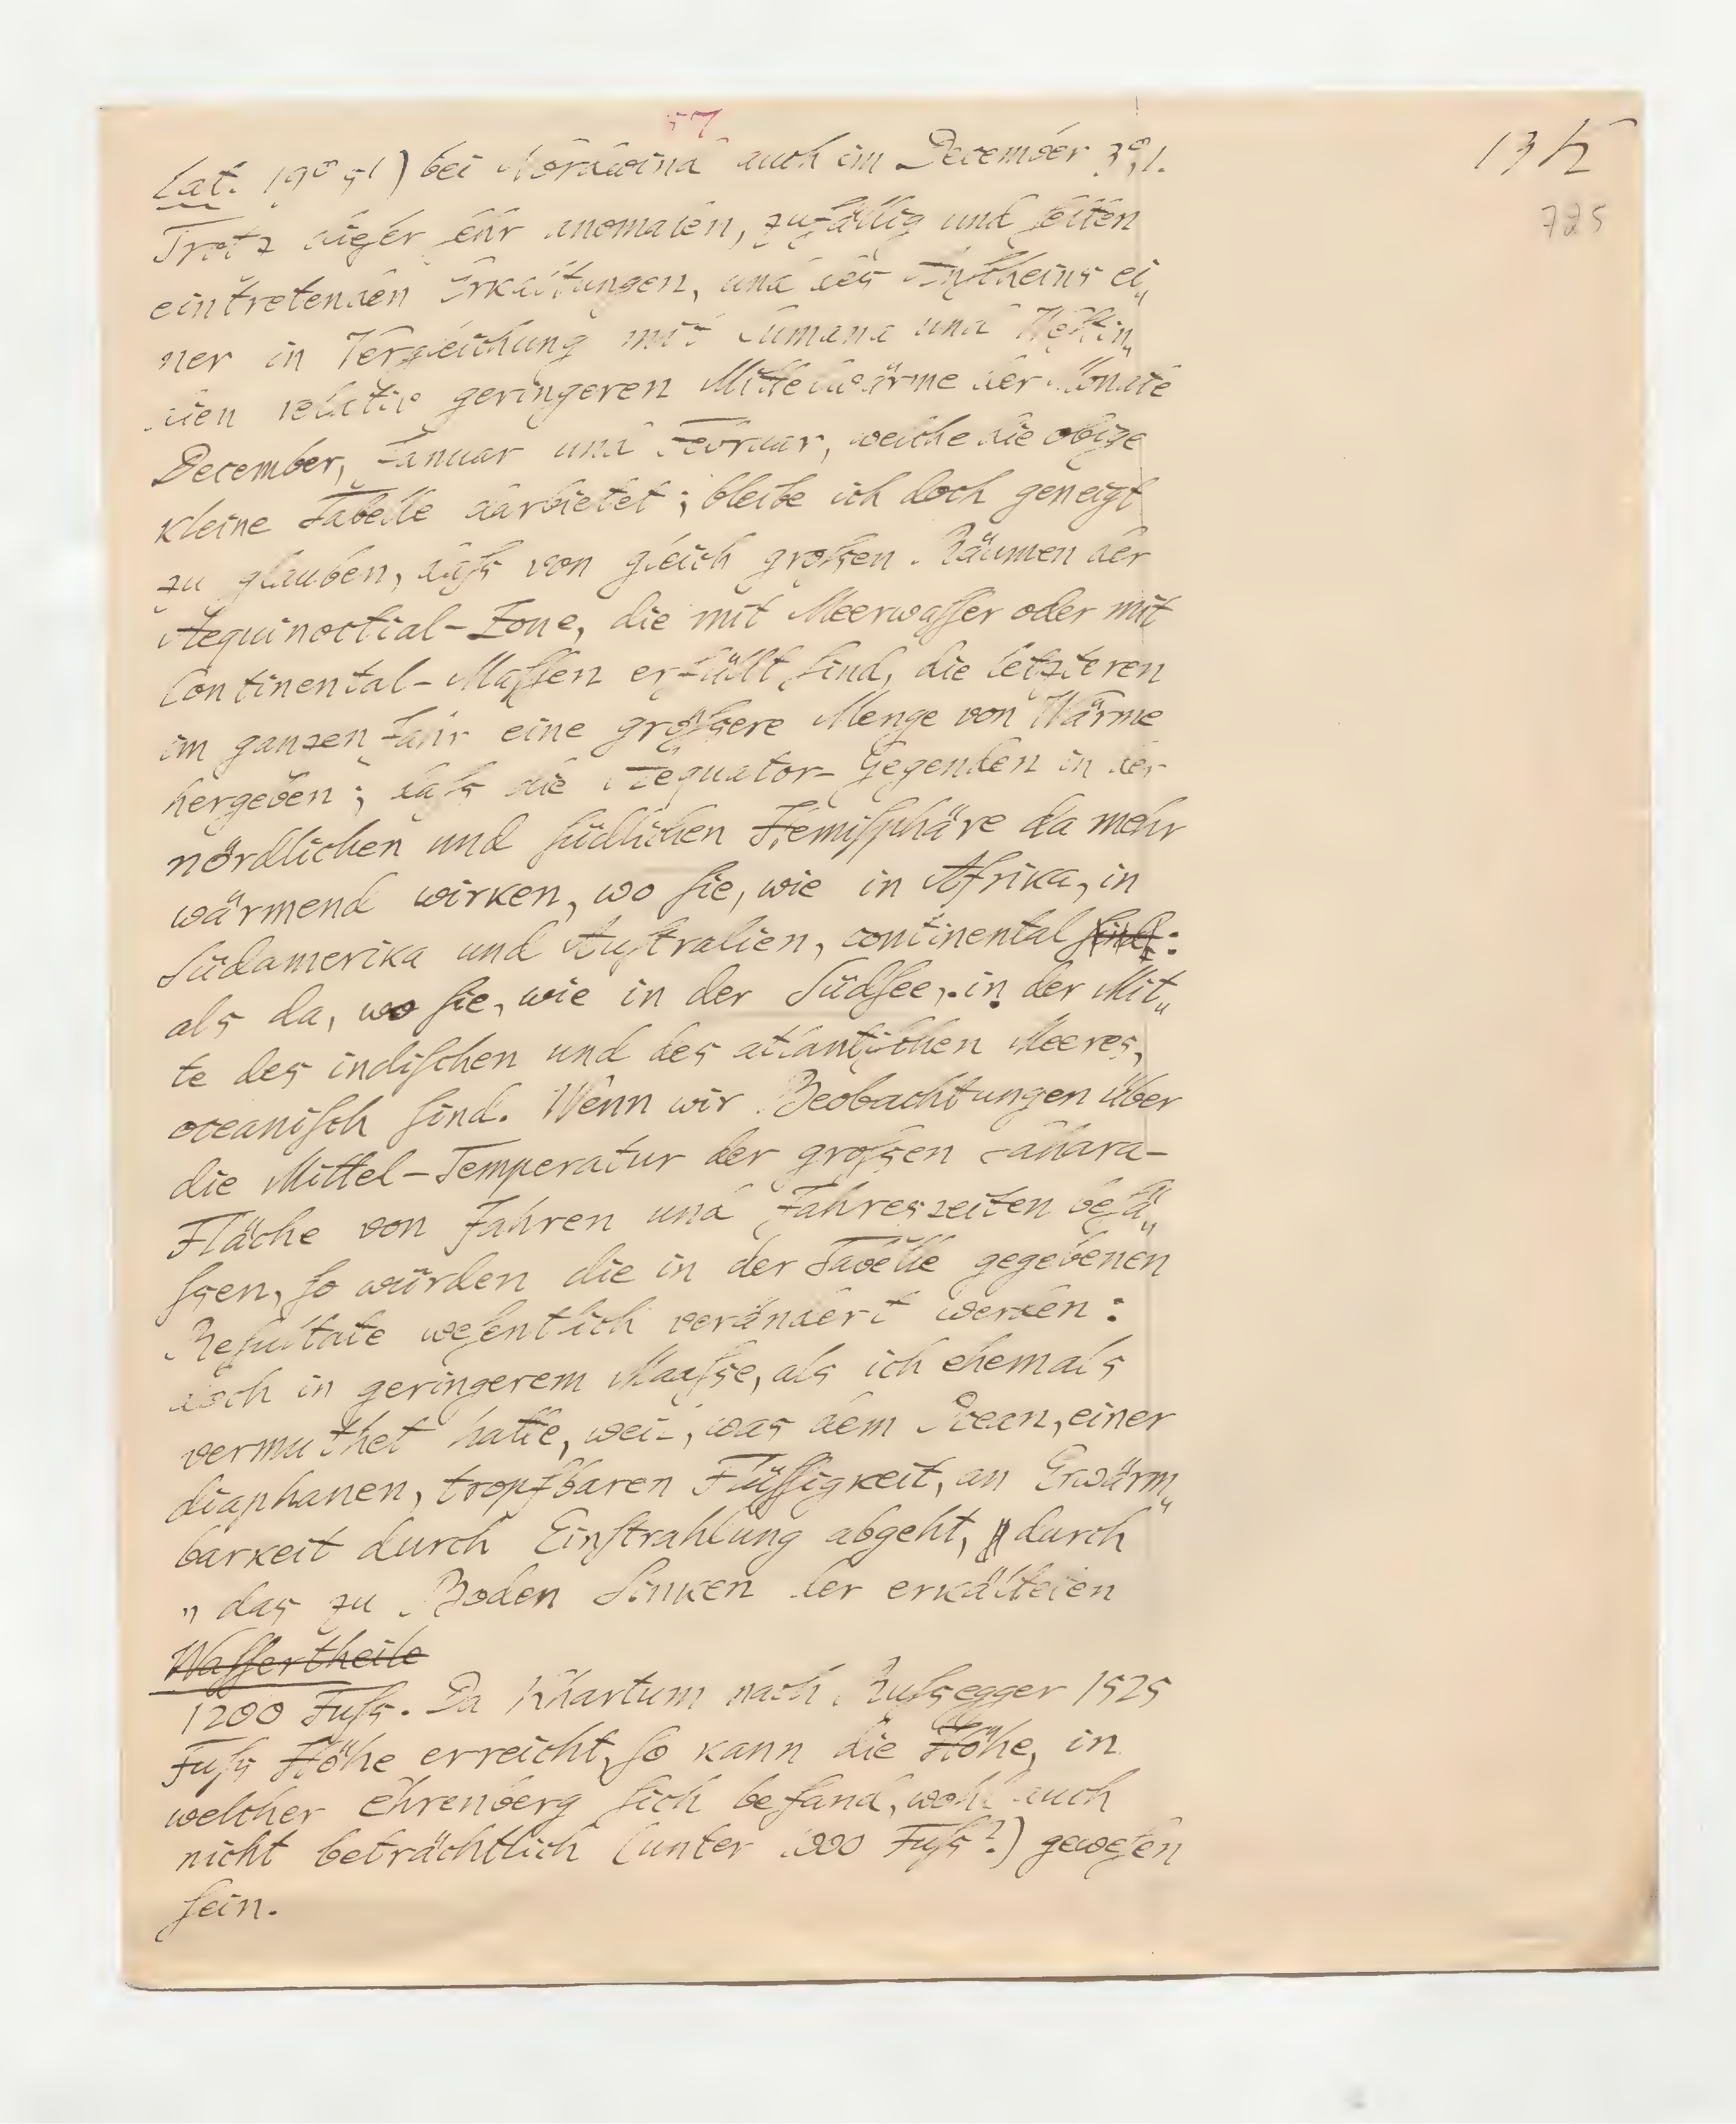 57
13 1/2
725
Lat. 19° 5') bei Nordwind auch im December 3°,1.
Trotz dieser sehr anomalen, zufällig und selten
eintretenden Erkältungen, und des Anscheins ei„
ner in Vergleichung mit Cumana und Westin„
dien relativ geringeren Mittelwärme der Monate
December, Januar und Februar, welche die obige
kleine Tabelle darbietet; bleibe ich doch geneigt
zu glauben, daſs von gleich groſsen Räumen der
Aequinoctial-Zone, die mit Meerwaſſer oder mit
Continental-Maſſen erfüllt ſind, die letzteren
im ganzen Jahr eine gröſsere Menge von Wärme
hergeben; daſs die Aequator-Gegenden in der
nördlichen und ſüdlichen Hemiſphäre da mehr
wärmend wirken, wo ſie, wie in Afrika, in
Südamerika und Auſtralien, continental ſind:
als da, wo ſie, wie in der Südſee, in der Mit„
te des indiſchen und des atlantiſchen Meeres,
oceaniſch ſind. Wenn wir Beobachtungen über
die Mittel-Temperatur der groſsen Sahara-
Fläche von Jahren und Jahreszeiten beſä„
ſsen, ſo würden die in der Tabelle gegebenen
Reſultate weſentlich verändert werden:
doch in geringerem Maaſse, als ich ehemals
vermuthet hatte, weil, was dem Ocean, einer
diaphanen, tropfbaren Flüſſigkeit, an Erwärm„
barkeit durch Einſtrahlung abgeht, durch
„ das zu Boden Sinken der erkälteten
Waſſertheile
1200 Fuſs. Da Khartum nach Ruſsegger 1525
Fuſs Höhe erreicht, ſo kann die Höhe, in
welcher Ehrenberg ſich befand, wohl auch
nicht beträchtlich (unter 1000 Fuſs?) geweſen
ſein.